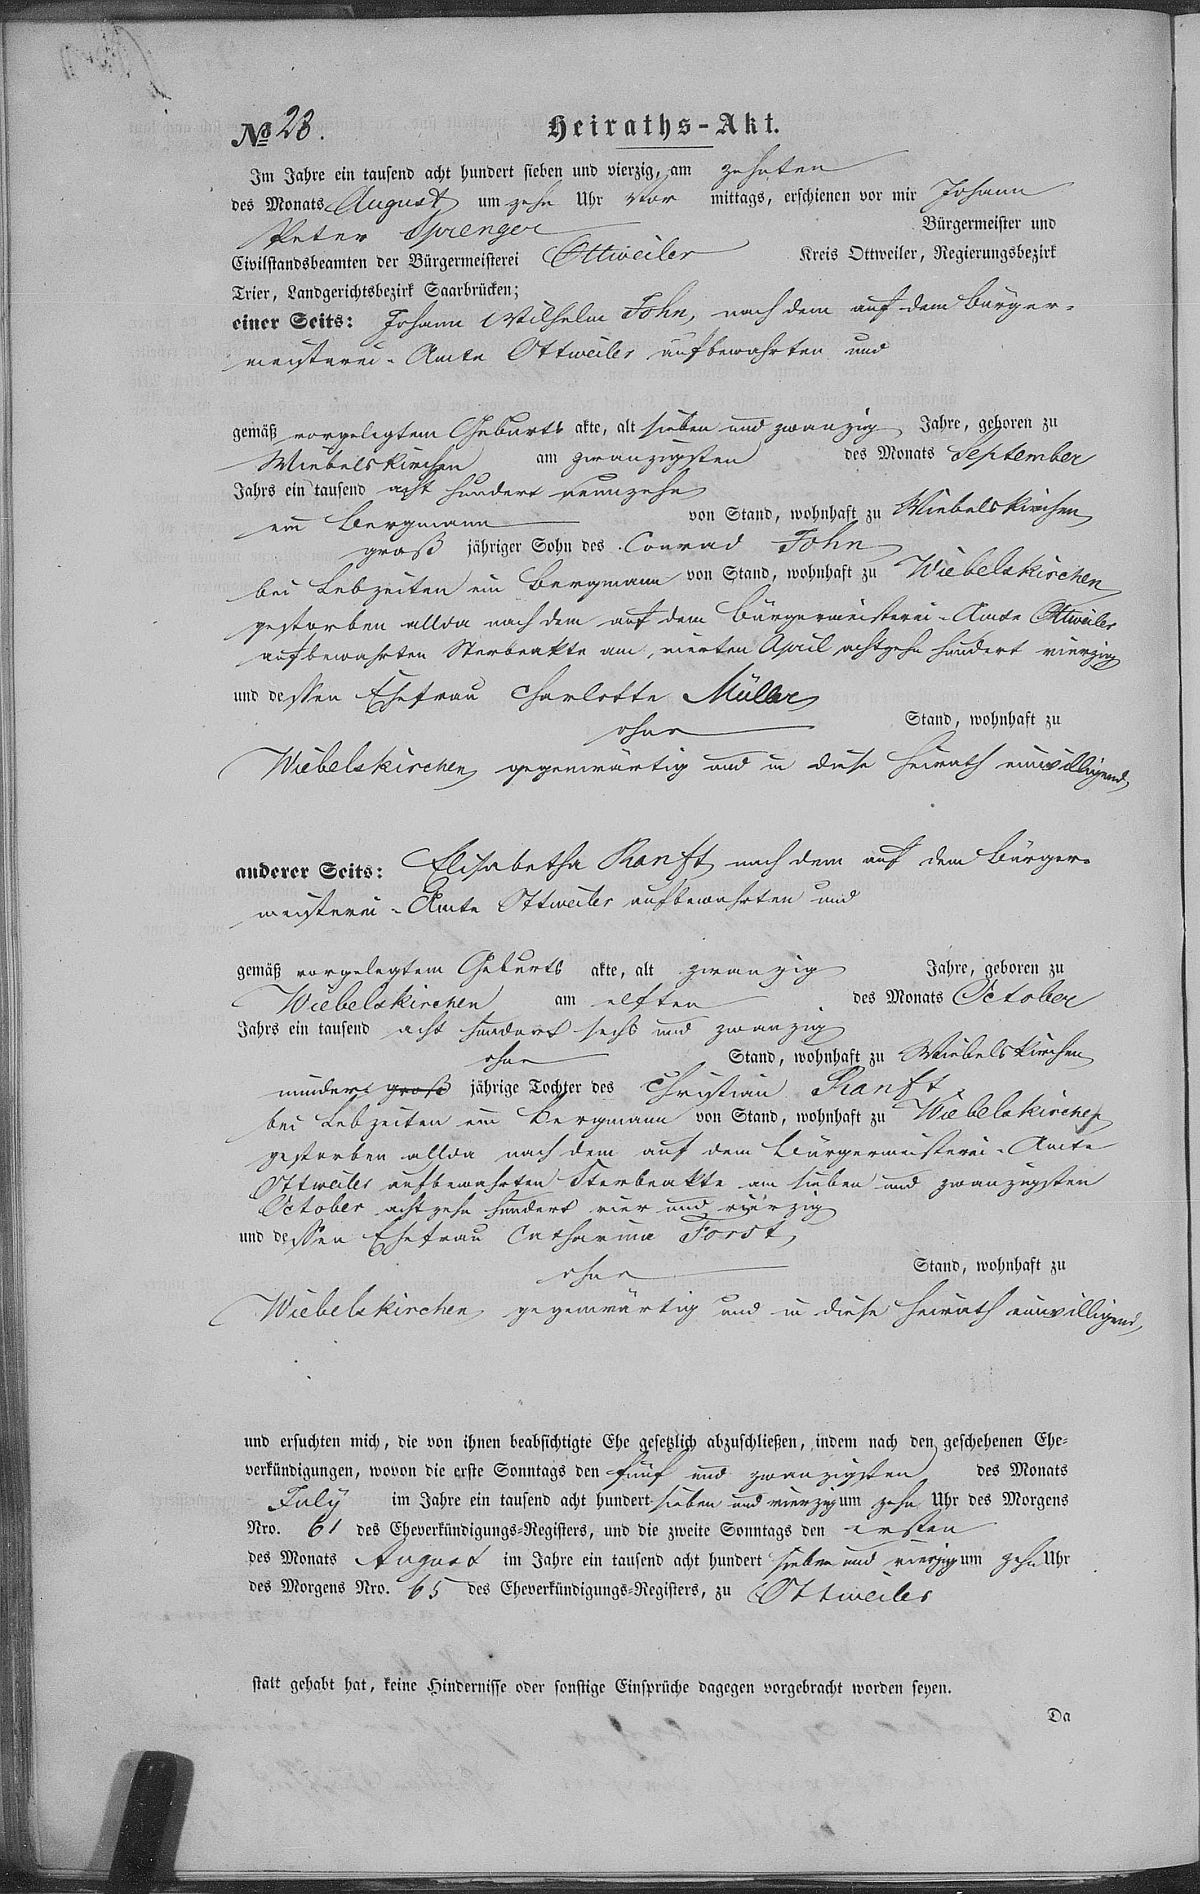 № 28. Heiraths-Akt.
Im Jahre ein tausend acht hundert sieben und vierzig, am zehnten
des Monats August um zehn Uhr Vor mittags, erschienen vor mir Johann
Peter Sprenger Bürgermeister und
Civilstandsbeamten der Bürgermeisterei Ottweiler Kreis Ottweiler, Regierungsbezirk
Trier, Landgerichtsbezirk Saarbrücken;
einer Seits: Johann Wilhelm John, nach dem auf dem Bürger-
meisterei-Amte Ottweiler aufbewahrten und
gemäß vorgelegtem Geburts akte, alt sieben und zwanzig Jahre, geboren zu
Wiebelskirchen am zwanzigsten des Monats September
Jahrs ein tausend acht hundert neunzehn
ein Bergmann von Stand, wohnhaft zu Wiebelskirchen
groß jähriger Sohn des Conrad John
bei Lebzeiten ein Bergmann von Stand, wohnhaft zu Wiebelskirchen
gestorben allda nach dem auf dem Bürgermeisterei-Amte Ottweiler
aufbewahrten Sterbeakte am vierten April achtzehn hundert vierzig
und dessen Ehefrau Charlotte Müller
ohne Stand, wohnhaft zu
Wiebelskirchen gegenwärtig und in diese Heirath einwilligend,
anderer Seits: Elisabetha Ranft nach dem auf dem Bürger-
meisterei-Amte Ottweiler aufbewahrten und
gemäß vorgelegtem Geburts akte, alt zwanzig Jahre, geboren zu
Wiebelskirchen am elften des Monats October
Jahrs ein tausend acht hundert sechs und zwanzig
ohne Stand, wohnhaft zu Wiebelskirchen
minder groß jährige Tochter des Christian Ranft
bei Lebzeiten ein Bergmann von Stand, wohnhaft zu Wiebelskirchen
gestorben allda nach dem auf dem Bürgermeisterei-Amte
Ottweiler aufbewahrten Sterbeakte am sieben und zwanzigsten
October achtzehn hundert vier und vierzig
und dessen Ehefrau Catharina Forst,
ohne Stand, wohnhaft zu
Wiebelskirchen gegenwärtig und in diese Heirath einwilligend,
und ersuchten mich, die von ihnen beabsichtigte Ehe gesetzlich abzuschließen, indem nach den geschehenen Ehe-
verkündigungen, wovon die erste Sonntags den fünf und zwanzigsten des Monats
July im Jahre ein tausend acht hundert sieben und vierzig um zehn Uhr des Morgens
Nro. 61 des Eheverkündigungs-Registers, und die zweite Sonntags den ersten
des Monats August im Jahre ein tausend acht hundert sieben und vierzig um zehn Uhr
des Morgens Nro. 65 des Eheverkündigungs-Registers, zu Ottweiler
statt gehabt hat, keine Hindernisse oder sonstige Einsprüche dagegen vorgebracht worden seyen.
Da